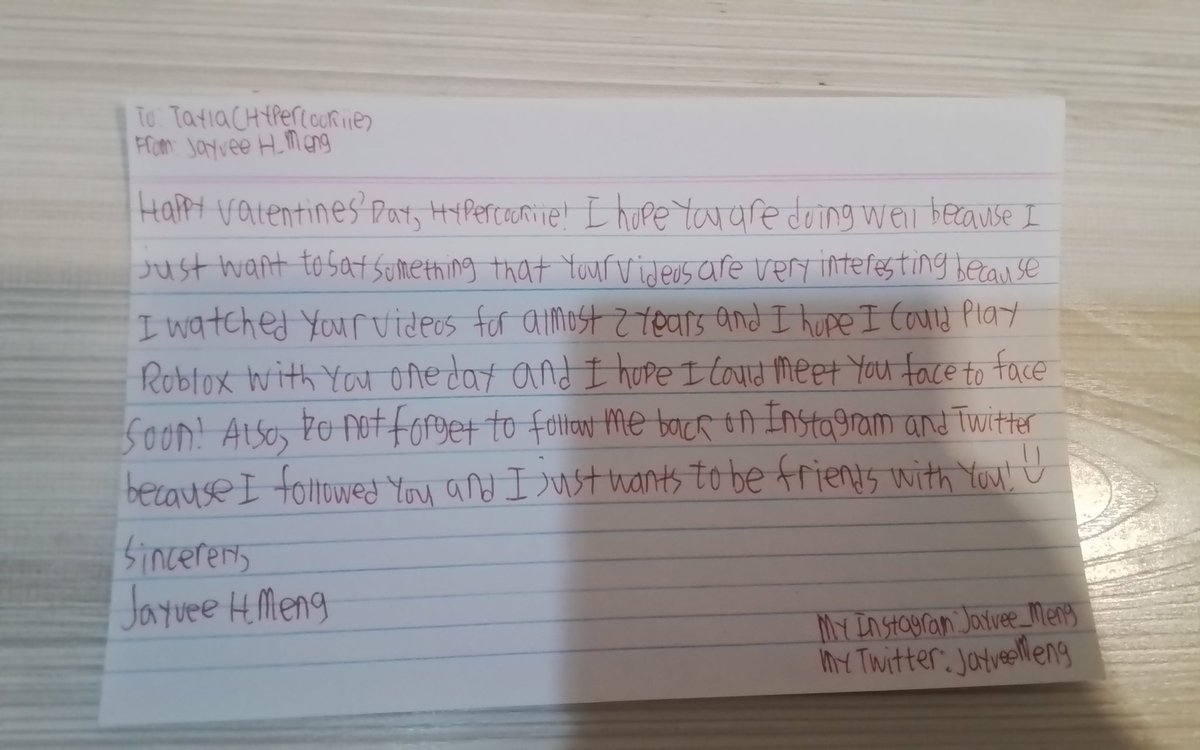 To: Tayla(Hypercookiie)
From: Jayvee H. Meng
Happy Valentines' Day, Hypercookiie! I hope you are doing well because I
just want to say something that your videos are very interesting because
I watched your videos for almost 2 years and I hope I could play
Roblox with you one day and I hope I could meet you face to face
soon! Also, Do not forget to follow me back on Instagram and Twitter
because I followed you and I just wants to be friends with you! :)
Sincerely,
Jayvee H. Meng
My Instagram: Jayvee_Meng
My Twitter: JayveeMeng